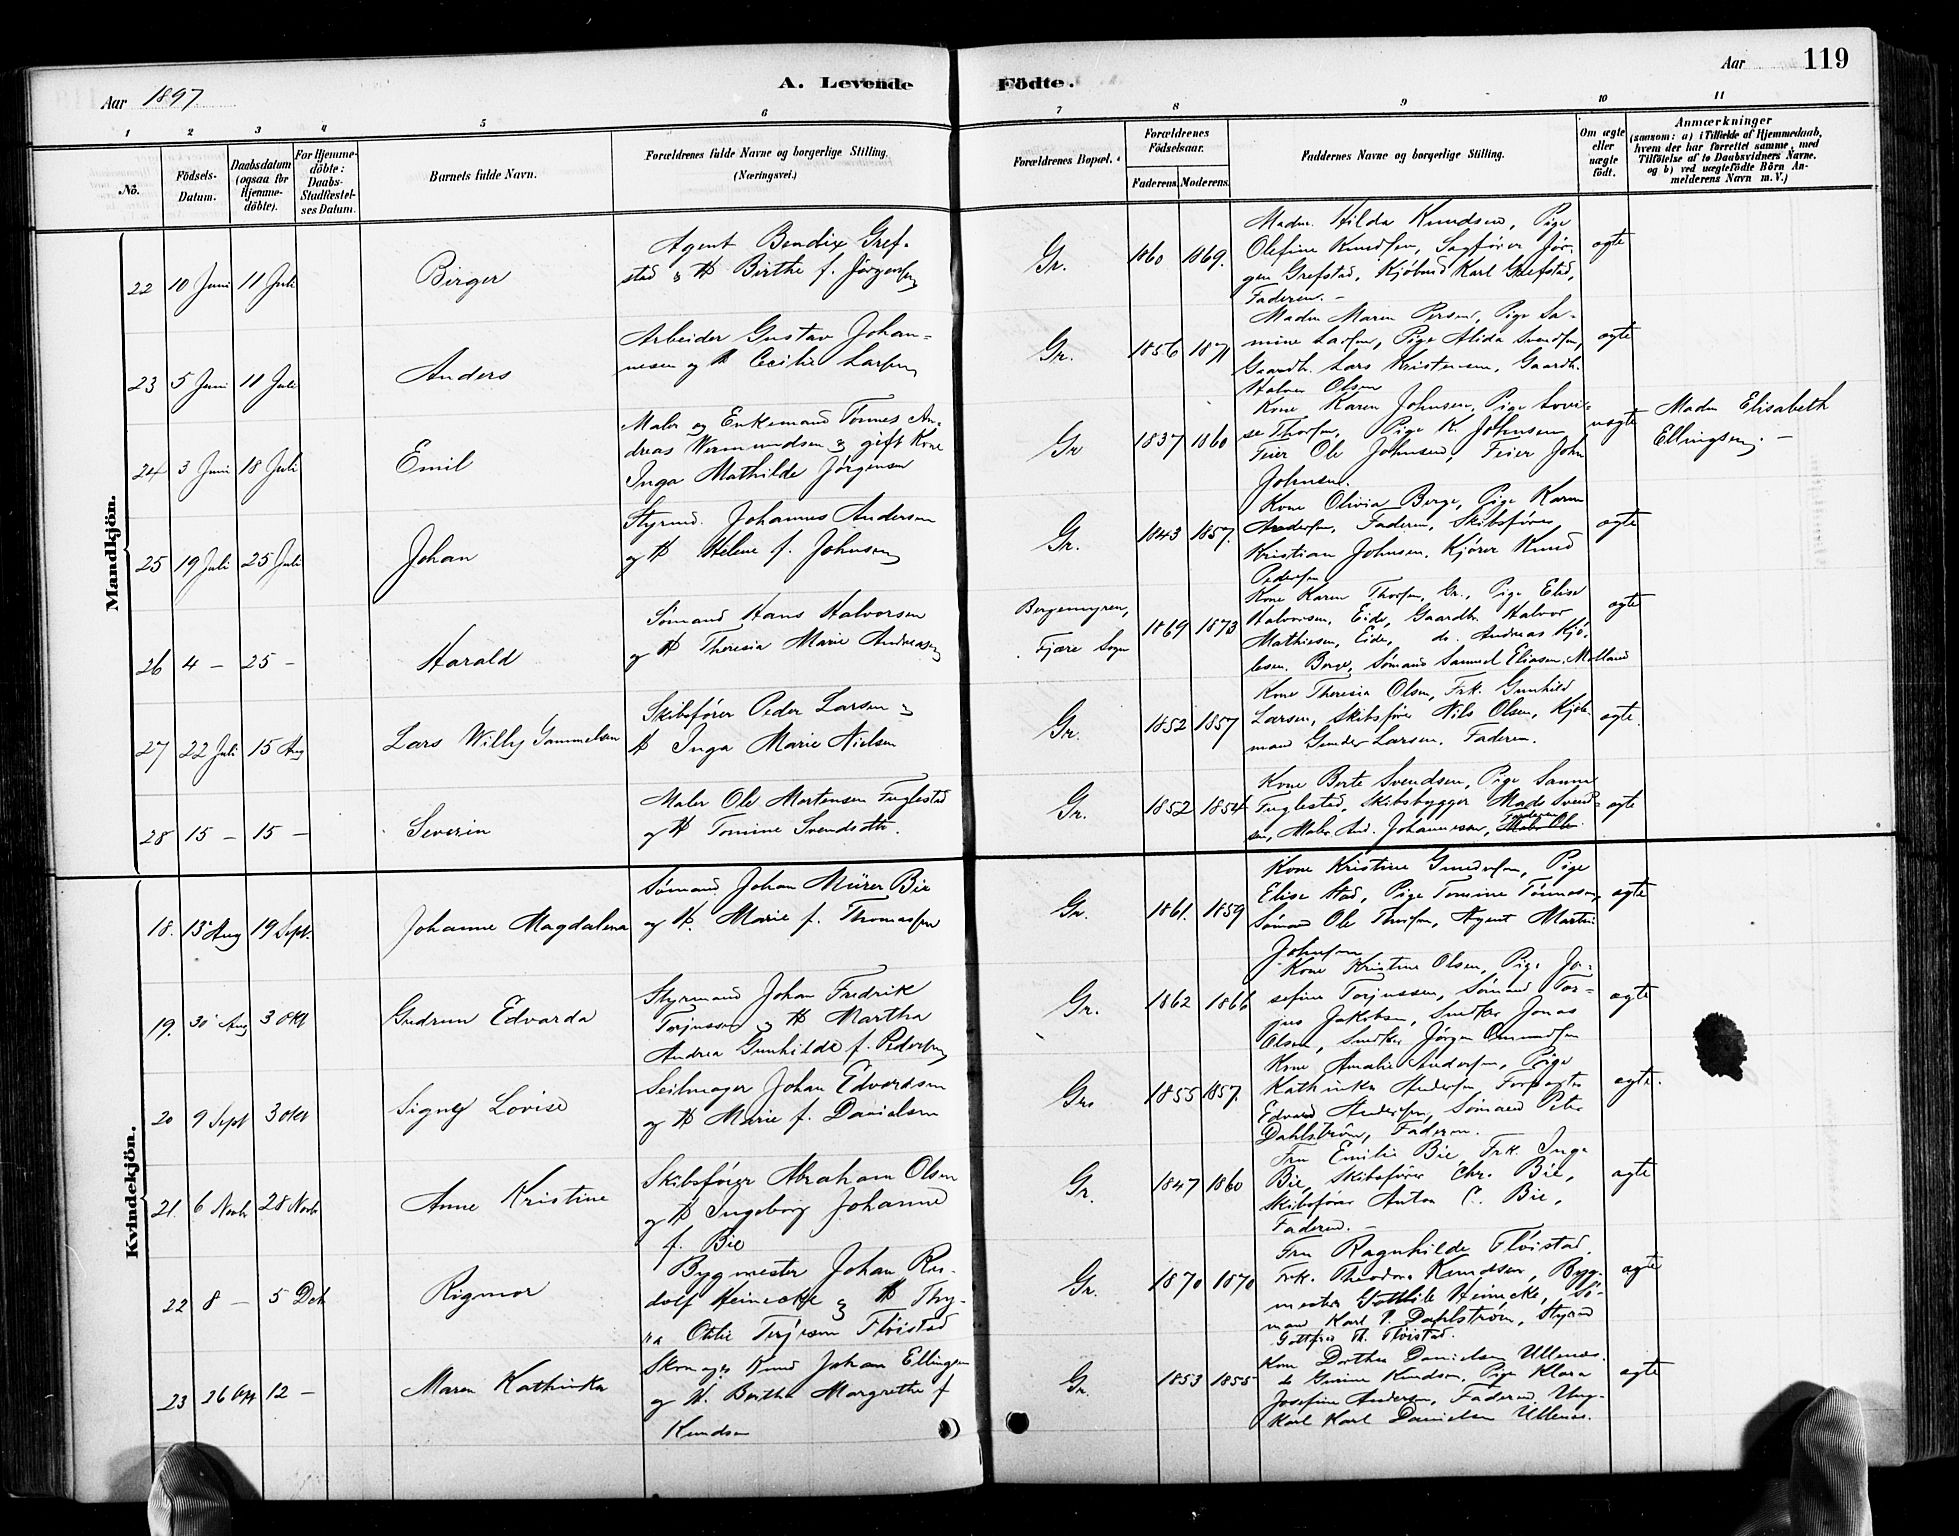 Aar 1897
A. Levende
Födte.
Aar
119
1 2 3 4 5 6 7 8 9 10 11
No.
Födsels-
Datum.
Daabsdatum
(ogsaa for
Hjemme-
döbte).
For Hjemme-
döbte:
Daabs-
Stadfæstel-
ses Datum.
Barnets fulde Navn.
Forældrenes fulde Navne og borgerlige Stilling.
(Næringsvei.)
Forældrenes Bopæl.
Forældrenes
Födselsaar.
Faderens. Moderens.
Faddernes Navne og borgerlige Stilling.
Om ægte
eller
uægte
födt.
Anmærkninger
(saasom: a) i Tilfælde af Hjemmedaab,
hvem der har forrettet samme, med
Tilföielse af to Daabsvidners Navne.
og b) ved uægtefödte Börn An-
melderens Navn m. V.)
Mandkjön.
22 10 Juni 11 Juli
Birger
Agent Bendix Gref-
stad & H Birthe f. Jørgensen
Gr.
1860 1869.
Madm. Hilda Knudsen, Pige
Olefine Knudsen, Sagfører Jør-
gen Grefstad, Kjøbmd Karl Grefstad,
Faderen. –
ægte
23 5 Juni 11 Juli
Anders
Arbeider Gustav Johan-
nesen og H Cecilie Larsen
Gr.
1856 1871
Madm Maren Persen, Pige Sa-
mine Larsen, Pige Alida Svendsen,
Gaardb. Lars Kristensen, Gaardb.
Halvor Olsen
ægte
24 3 Juni 18 Juli
Emil
Maler og Enkemand Tønnes An-
dreas Wermundsen & gift Kone
Inga Mathilde Jørgensen
Gr
1837 1860
Kone Karen Johnsen, Pige Lovi-
se Thorsen, Pige K. Johnsen
Feier Ole Johnsen, Feier John
Johnsen.
uægte
Madm Elisabeth
Ellingsen. –
25 19 Juli 25 Juli
Johan
Styrmd. Johannes Andersen
og H Helene f. Johnsen
Gr.
1843 1857.
Kone Olivia Berge, Pige Karen
Andersen, Faderen, Skibsfører
Kristian Johnsen, Kjører Knud
Pedersen
ægte
26 4 – 25 –
Harald
Sømand Hans Halvorsen
og H Theresia Marie Andreasen
Bergemyren,
Fjære Sogn
1869 1873
Kone Karen Thorsen, Gr., Pige Elise
Halvorsen, Eide, Gaardbr. Halvor
Mathiesen, Eide, do. Andreas Kjø-
lesen, Berge, Sømand Samuel Eliasen, Molland
ægte
27 22 Juli 15 Aug
Lars Willy Gammelsen
Skibsfører Peder Larsen &
H Inga Marie Nielsen
Gr.
1852 1857
Kone Theresia Olsen, Frk. Gunhild
Larsen, Skibsfører Nils Olsen, Kjøb-
mand Gunder Larsen, Faderen.
ægte.
28 15 – 15 –
Severin
Maler Ole Mortensen Fuglestad
og H Tomine Svendsdtr.
Gr.
1852 1854
Kone Berte Svendsen, Pige Sanne
Fuglestad, Skibsbygger Mads Svend-
sen, Maler And. Johannesen, Faderen
ægte
Kvindekjön.
18. 13 Aug 19 Sept.
Johanne Magdalena
Sømand Johan Mürer Bie
og H. Marie f. Thomassen
Gr.
1861. 1859
Kone Kristine Gundersen, Pige
Elise Stad, Pige Tomine Tønnesen,
Sømand Ole Thorsen, Agent Martin
Johnsen
ægte
19. 30 Aug 3 Okt
Gudrun Edvarda
Styrmand Johan Fredrik
Torjussen & H Martha
Andrea Gunhilde f. Pedersen
Gr.
1862 1866
Kone Kristine Olsen, Pige Jo-
sefine Torjussen, Sømand Tor-
jus Jakobsen, Snedker Jonas
Olsen, Snedker Jørgen Osmundsen
ægte
20 9 Sept 3 Okt
Signy Lovise
Seilmager Johan Edvardsen
og H Marie f. Danielsen
Gr.
1855 1857.
Kone Amalie Andersen, Pige
Kathinka Andersen, Forpagter
Edvard Andersen, Sømand Peter
Dahlstrøm, Faderen.
ægte.
21. 6 Novbr 28 Novbr
Anne Kristine
Skibsfører Abraham Olsen
og H Ingeborg Johanne
f. Bie
Gr.
1847 1860
Fru Emilie Bie, Frk. Inga
Bie, Skibsfører Chr. Bie,
Skibsfører Anton C. Bie,
Faderen. –
ægte
22 8 – 5 Deb
Rigmor
Bygmester Johan Ru-
dolf Heinecke & H Thy-
ra Otilie Terjesen Fløistad
Gr.
1870 1870
Fru Ragnhilde Fløistad,
Frk. Theodora Knudsen, Byg-
mester Gottlieb Heinecke, Sø-
mand Karl P. Dahlstrøm, Styrmd
Gottfred Th. Fløistad.
ægte
23 26 12 –
Maren Kathinka
Skomager Knud Johan Ellingsen
og H. Berthe Margrethe f
Knudsen
Gr.
1853 1855
Kone Dorthea Danielsen Ullenæs.
do Gunine Knudsen, Pige Klara
Josefine Andersen, Faderen, Ung-
karl Karl Danielsen Ullenæs.
ægte